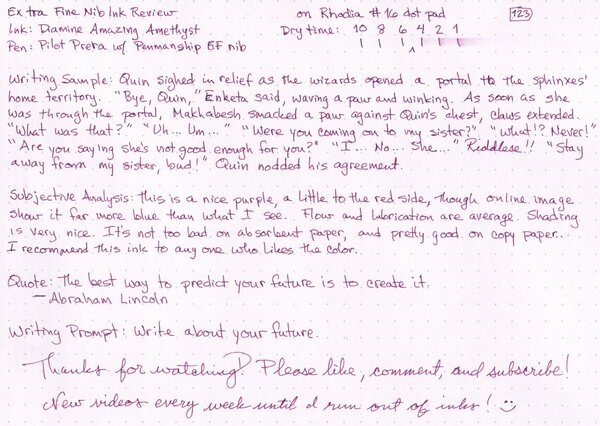 Extra Fine Nib Ink Review on Rhodia #16 dot pad 123
Ink: Diamine Amazing Amethyst Dry time: 10 8 6 4 2 1
Pen: Pilot Prera w/ Penmanship EF nib
Writing Sample: Quin sighed in relief as the wizards opened a portal to the sphinxes'
home territory. "Bye, Quin," Enketa said, waving a paw and winking. As soon as she
was through the portal, Makhabesh smacked a paw against Quin's chest, claws extended.
"What was that?" "Uh... Um..." "Were you coming on to my sister?" "What!? Never!"
"Are you saying she's not good enough for you?" "I... No... She..." Riddless!! "Stay
away from my sister, bud!" Quin nodded his agreement.
Subjective Analysis: This is a nice purple, a little to the red side, though online image
show it far more blue than what I see. Flow and lubrication are average. Shading
is very nice. It's not too bad on absorbent paper, and pretty good on copy paper.
I recommend this ink to any one who likes the color.
Quote: The best way to predict your future is to create it.
— Abraham Lincoln
Writing Prompt: Write about your future.
Thanks for watching! Please like, comment, and subscribe!
New videos every week until I run out of inks! :)